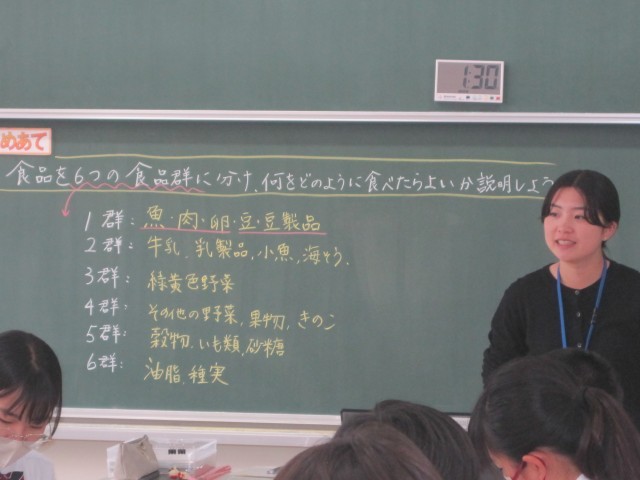 1:30
めあて
食品を6つの食品群に分け、何をどのように食べたらよいか説明しよう
1群: 魚・肉・卵・豆・豆製品
2群: 牛乳、乳製品、小魚、海そう、
3群: 緑黄色野菜
4群: その他の野菜、果物、きのこ
5群: 穀物、いも類、砂糖
6群: 油脂、種実